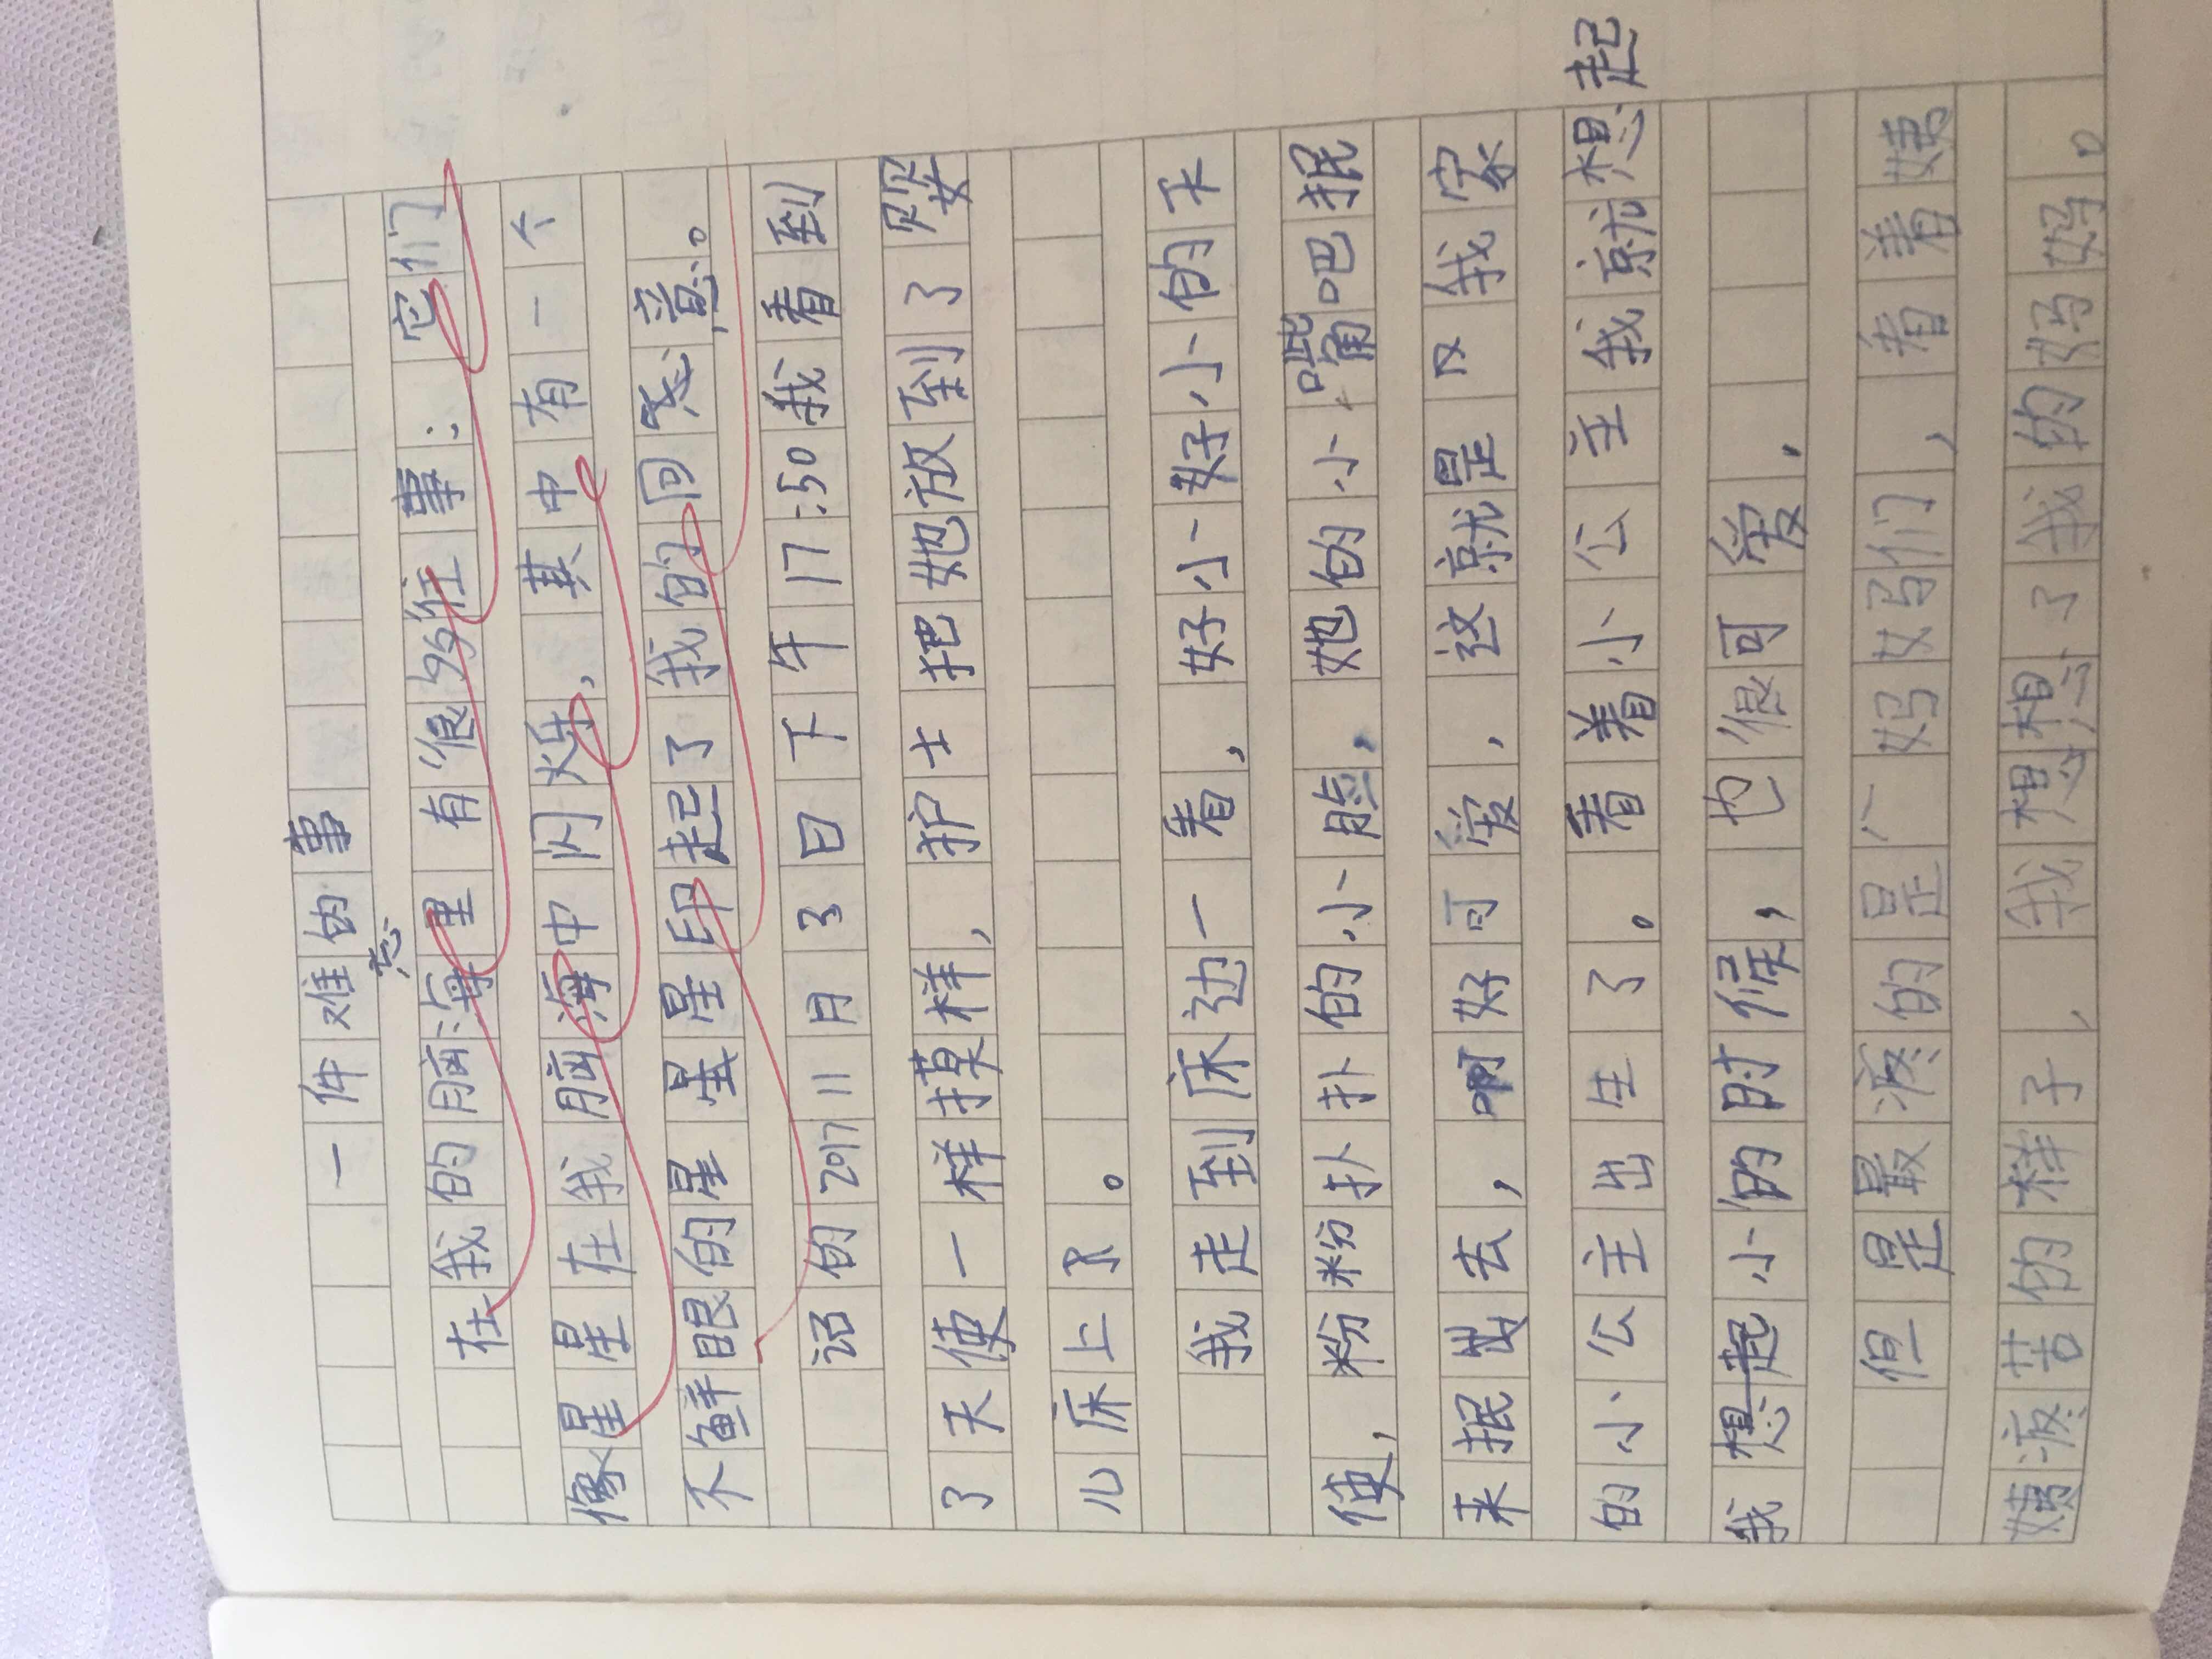 一件难忘的事
在我的脑海里有很多往事：它们
像星星在我脑海中闪烁，其中有一个
不鲜眼的星星星印起了我的回忆意。
记的2017 11月3日下午17:50我看到
了天使一样摸样，护士把她放到了婴
儿床上了。
我走到床边一看，好小好小的天
使，粉粉扑扑的小脸，她的小嘴吧抿
来抿出去，啊好可爱，这就是又我家
的小公主出生了。看着小公主我就想起
我想起小的时候，也很可爱，
但是最疼的是个妈妈们，看着姨
姨疼苦的样子，我想想了我的妈妈。